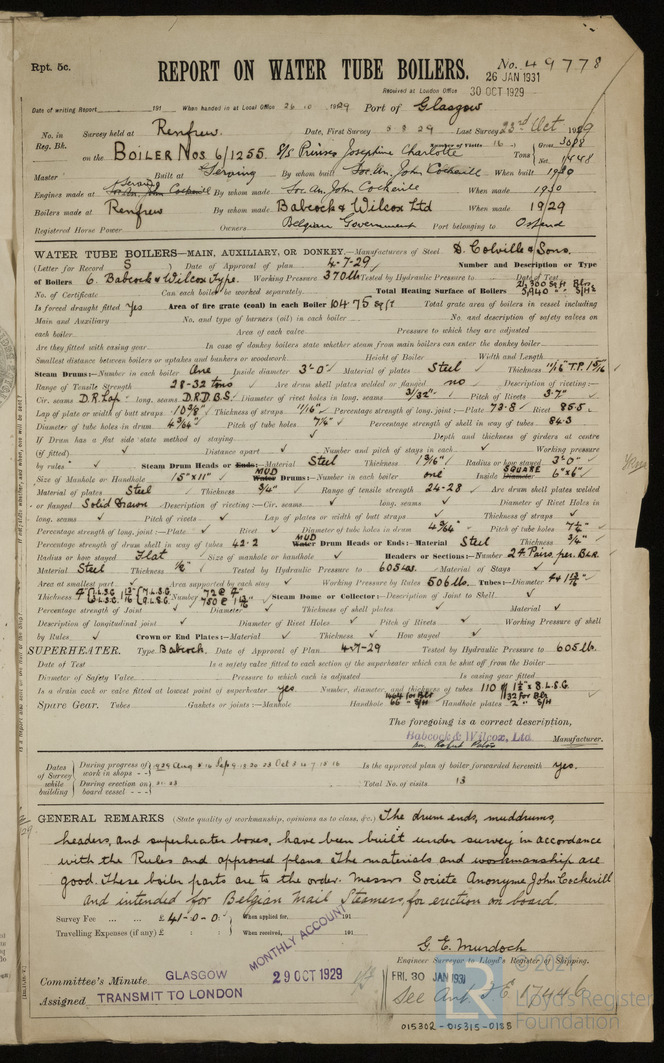 Rpt. 5c.
REPORT ON WATER TUBE BOILERS.
No. 49778
26 JAN 1931
Received at London Office
30 OCT 1929
Date of writing Report 191 When handed in at Local Office 26 10 1929 Port of Glasgow
No. in Survey held at Renfrew. Date, First Survey 5 8 29 Last Survey 23rd Oct 1929
Reg. Bk. Number of Visits 16
on the BOILER Nos 6/1255. S/S Prinses Josephine Charlotte Tons Gross 3088 Net 1448
Master Built at Seraing By whom built Soc. An. John Cockerill When built 1930
Engines made at Seraing By whom made Soc. An. John Cockerill When made 1930
Boilers made at Renfrew By whom made Babcock & Wilcox Ltd When made 1929
Registered Horse Power Owners Belgian Government Port belonging to Ostend
WATER TUBE BOILERS—MAIN, AUXILIARY, OR DONKEY.—Manufacturers of Steel D. Colville & Sons.
(Letter for Record S) Date of Approval of plan 4-7-29 Number and Description or Type
of Boilers 6. Babcock & Wilcox Type. Working Pressure 370 lb Tested by Hydraulic Pressure to Date of Test
No. of Certificate Can each boiler be worked separately Total Heating Surface of Boilers
Is forced draught fitted yes Area of fire grate (coal) in each Boiler 104.75 sq ft Total grate area of boilers in vessel including
Main and Auxiliary No. and type of burners (oil) in each boiler No. and description of safety valves on
each boiler Area of each valve Pressure to which they are adjusted
Are they fitted with easing gear In case of donkey boilers state whether steam from main boilers can enter the donkey boiler
Smallest distance between boilers or uptakes and bunkers or woodwork Height of Boiler Width and Length
Steam Drums:—Number in each boiler One Inside diameter 3'-0" Material of plates Steel Thickness 11/16" T.P. 1 5/16
Range of Tensile Strength 28-32 tons Are drum shell plates welded or flanged no Description of riveting:—
Cir. seams D.R. Lap long. seams D.R.D.B.S. Diameter of rivet holes in long. seams 3/32" Pitch of Rivets 3.7"
Lap of plate or width of butt straps 10 3/8" Thickness of straps 11/16" Percentage strength of long. joint:—Plate 73.8 Rivet 85.5
Diameter of tube holes in drum 4 3/64" Pitch of tube holes 7 1/4" Percentage strength of shell in way of tubes 84.3
If Drum has a flat side state method of staying Depth and thickness of girders at centre
(if fitted) Distance apart Number and pitch of stays in each Working pressure
by rules Steam Drum Heads or Ends:—Material Steel Thickness 1 3/16" Radius or how stayed 3'-0"
Size of Manhole or Handhole 15" x 11" MUD Water Drums:—Number in each boiler one Inside SQUARE Diameter 6" x 6"
Material of plates Steel Thickness 3/4" Range of tensile strength 24-28 Are drum shell plates welded
or flanged Solid Drawn Description of riveting:—Cir. seams long. seams Diameter of Rivet Holes in
long. seams Pitch of rivets Lap of plates or width of butt straps Thickness of straps
Percentage strength of long. joint:—Plate Rivet Diameter of tube holes in drum 4 3/64" Pitch of tube holes 7 1/4"
Percentage strength of drum shell in way of tubes 42.2 MUD Water Drum Heads or Ends:—Material Steel Thickness 3/4"
Radius or how stayed Flat Size of manhole or handhole Headers or Sections:—Number 24 Pairs. per. BLR.
Material Steel Thickness Tested by Hydraulic Pressure to 605 lbs. Material of Stays
Area at smallest part Area supported by each stay Working Pressure by Rules 506 lb. Tubes:—Diameter
Thickness Number Steam Dome or Collector:—Description of Joint to Shell
Percentage strength of Joint Diameter Thickness of shell plates Material
Description of longitudinal joint Diameter of Rivet Holes Pitch of Rivets Working Pressure of shell
by Rules Crown or End Plates:—Material Thickness How stayed
SUPERHEATER. Type Babcock. Date of Approval of Plan 4-7-29 Tested by Hydraulic Pressure to 605 lb.
Date of Test Is a safety valve fitted to each section of the superheater which can be shut off from the Boiler
Diameter of Safety Valve Pressure to which each is adjusted Is easing gear fitted
Is a drain cock or valve fitted at lowest point of superheater yes Number, diameter, and thickness of tubes 110 1 1/2" x 8 L.S.G.
Spare Gear. Tubes Gaskets or joints:—Manhole Handhole Handhole plates
The foregoing is a correct description,
Babcock & Wilcox, Ltd. Manufacturer.
Dates of Survey while building During progress of work in shops - - Is the approved plan of boiler forwarded herewith yes.
During erection on board vessel - - - Total No. of visits 13
GENERAL REMARKS (State quality of workmanship, opinions as to class, &c.) The drum ends, muddrums,
headers, and superheater boxes, have been built under survey in accordance
with the Rules and approved plans. The materials and workmanship are
good. These boiler parts are to the order Messrs Societe Anonyme John Cockerill
and intended for Belgian Mail Steamers, for erection on board.
Survey Fee ... ... £ 41-0-0 When applied for, 191
Travelling Expenses (if any) £ : : When received, 191
MONTHLY ACCOUNT
G. E. Murdoch
Engineer Surveyor to Lloyd's Register of Shipping.
Committee's Minute GLASGOW 29 OCT 1929
FRI. 30 JAN 1931
Assigned TRANSMIT TO LONDON
See Ant. F.E. 17446
© 2021
LR
Lloyd's Register
Foundation
015302-015315-0188